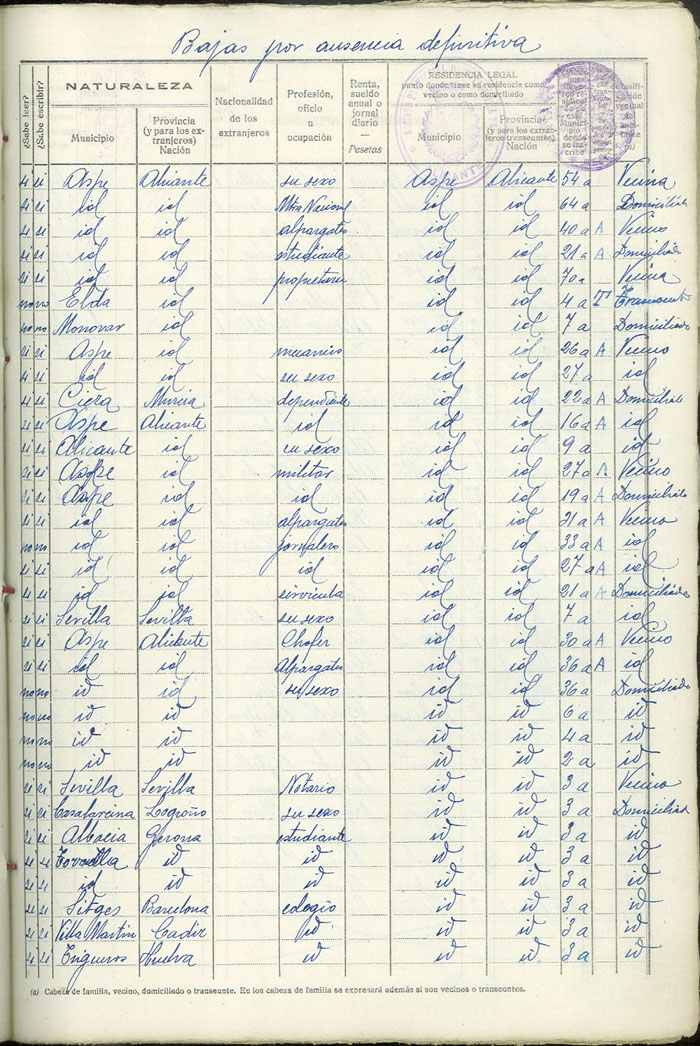 Bajas por ausencia definitiva
¿Sabe leer? ¿Sabe escribir? NATURALEZA Nacionalidad de los extranjeros Profesión, oficio u ocupación Renta, sueldo anual o jornal diario — Pesetas RESIDENCIA LEGAL punto donde tiene su residencia como vecino o como domiciliado
Municipio Provincia (y para los extranjeros) Nación Municipio Provincia (y para los extranjeros transeuntes) Nación
si si Aspe Alicante su sexo Aspe Alicante 54 a Vecina
si si id id Mtra Nacional id id 64 a Domiciliada
si si id id alpargatero id id 40 a A Vecino
si si id id estudiante id id 21 a A Domiciliado
si si id id propietaria id id 70 a Vecina
no no Elda id id id 4 a T Transeunte
no no Monovar id id id 7 a Domiciliada
si si Aspe id mecanico id id 26 a A Vecino
si si id id su sexo id id 27 a id
si si Cieza Murcia dependiente id id 22 a A Domiciliado
si si Aspe Alicante id id id 16 a A id
si si Alicante id su sexo id id 9 a id
si si Aspe id militar id id 27 a A Vecino
si si Aspe id id id id 19 a A Domiciliado
si si id id alpargatero id id 31 a A Vecino
no no id id jornalero id id 33 a A id
si si id id id id id 27 a A id
si si id id id id 21 a A Domiciliado
si si Sevilla Sevilla su sexo id id 7 a id
si si Aspe Alicante Chofer id id 30 a A Vecino
si si id id Alpargatero id id 36 a A id
no no id id su sexo id id 36 a Domiciliada
no no id id id id 6 a id
no no id id id id 4 a id
no no id id id id 2 a id
si si Sevilla Sevilla Notario id id 3 a Vecino
si si Logroño su sexo id id 3 a Domiciliada
si si Gerona estudiante id id 3 a id
si si id id id id 3 a id
si si id id id id id 3 a id
si si Sitges Barcelona colegio id id 3 a id
si si Villa Martin Cadiz id id id 3 a id
si si Trigueros Huelva id id id 3 a id
(a) Cabeza de familia, vecino, domiciliado o transeunte. En los cabeza de familia se expresará además si son vecinos o transeuntes.